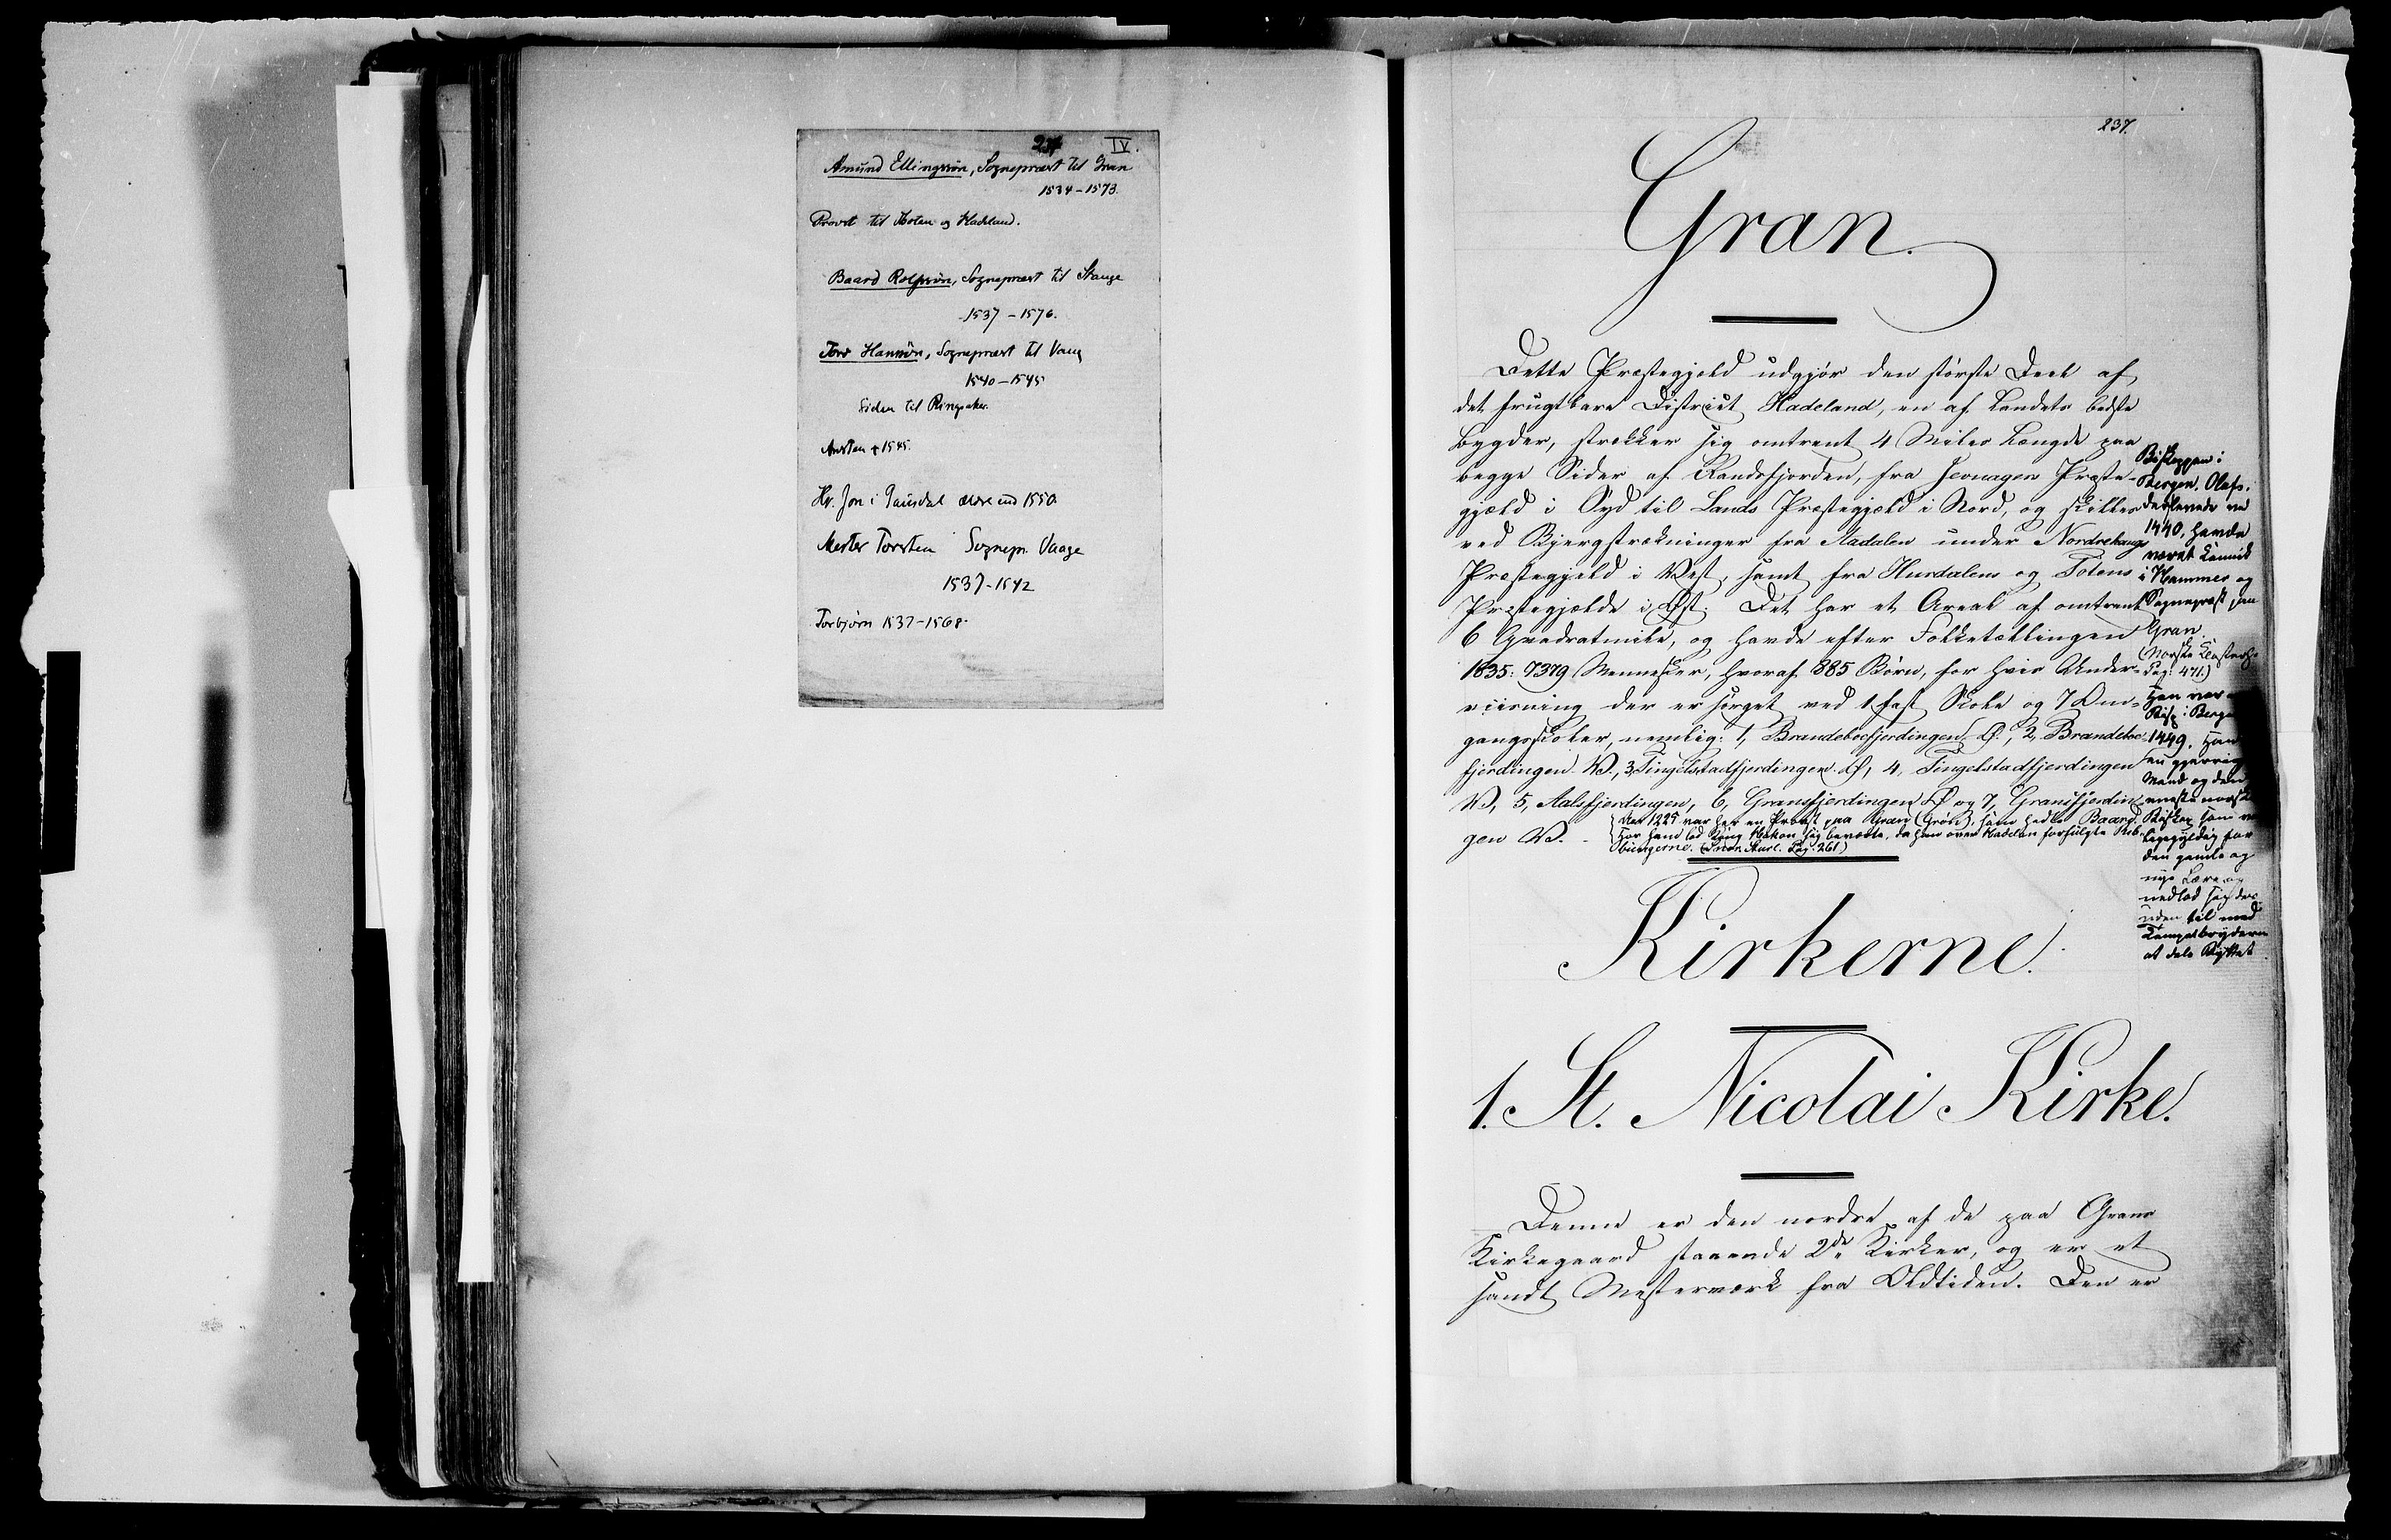 IV.
Amund Ellingssøn, Sogneprest til Gran
1534-1573.
Provst til Thoten og Hadeland.
Baard Rolfssøn, Sogneprest til Stange
1537-1576.
Tord Hanssøn, Sogneprest til Vang
1540-1545
siden til Ringsaker.
Austen † 1545.
Hr. Jon i Gausdal ældre end 1550
Mester Torsten Sognepr. Vaage
1537-1542
Torbjørn 1537-1568.
237.
Gran.
Dette Præstegjæld udgjør den største Deel af
det frugtbare District Hadeland, en af Landets bedste
Bygder, strækker sig omtrent 4 Miles Længde paa
begge Sider af Randsfjorden, fra Jevnager Præste-
gjæld i Syd til Lands Præstegjæld i Nord, og skilles
ved Bjergstrækninger fra Aadalen under Nordrehaugs
Præstegjæld i Vest, samt fra Hurdalens og Totens
Præstegjælde i Øst. Det har et Areal af omtrent
6 Qvadratmile, og havde efter Folketællingen
1835: 7379 Mennesker, hvoraf 885 Børn, for hvis Under-
viisning der er sørget ved 1 fast Skole og 7 Om-
gangsskoler, nemlig: 1, Brandeboefjerdingen Ø., 2, Brandeboe-
fjerdingen V., 3, Tingelstadfjerdingen Ø, 4, Tingelstadfjerdingen
V, 5, Aalsfjerdingen, 6, Gransfjerdingen Ø og 7, Gransfjerdin-
gen V. -
Aar 1225 var her en Provst paa Gran (Grón), som hedte Baard.
Hos ham lod Kong Hakon sig beværte, da han over Hadelan forfulgte Rib-
bungerne. (Snor. Sturl. Pag: 261)
Biskoppen i
Bergen, Olaf,
der levede ved
1440, havde
været Kannik
i Hammer og
Sognepræst paa
Gran.
(Norske Klosterh.
Pag: 471.)
Han var
Bisp i Bergen
1449. Han
en gjerrig
Mand og den
eneste norske
Biskop som
ligegyldig for
den gamle og
nye Lære og
nedlod sig des-
uden til med
Tempelbryderne
at dele Byttet.
Kirkerne.
1. St. Nicolai Kirke.
Denne er den nordre af de paa Grans
Kirkegaard staaende 2de Kirker, og er et
sandt Mesterværk fra Oldtiden. Den er